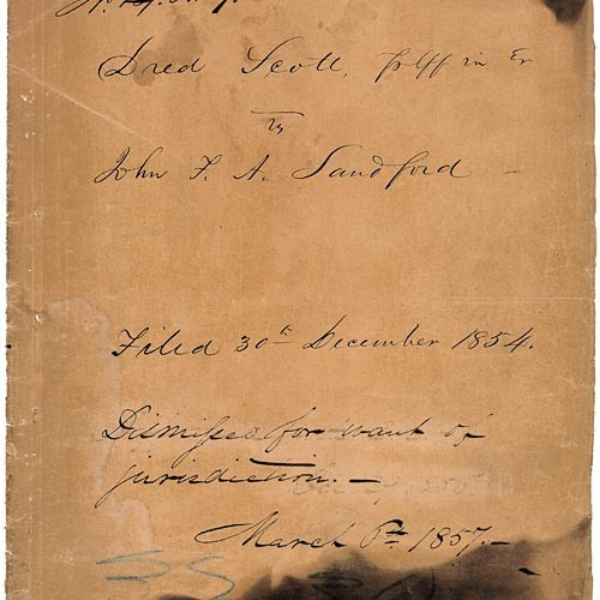 Dred Scott, Plff in Er
vs
John F. A. Sandford
Filed 30th December 1854.
Dismissed for want of
jurisdiction. —
March 6th 1857. —